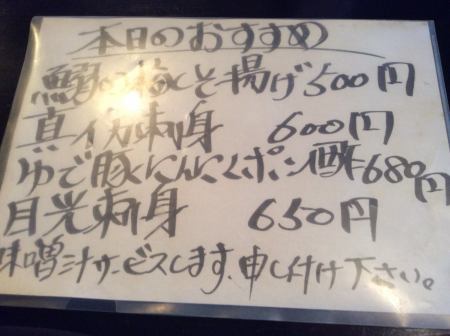 本日のおすすめ
鰯の梅しそ揚げ500円
真イカ刺身 600円
ゆで豚にんにくポン酢680円
目光刺身 650円
味噌汁サービスします、申し付け下さい。